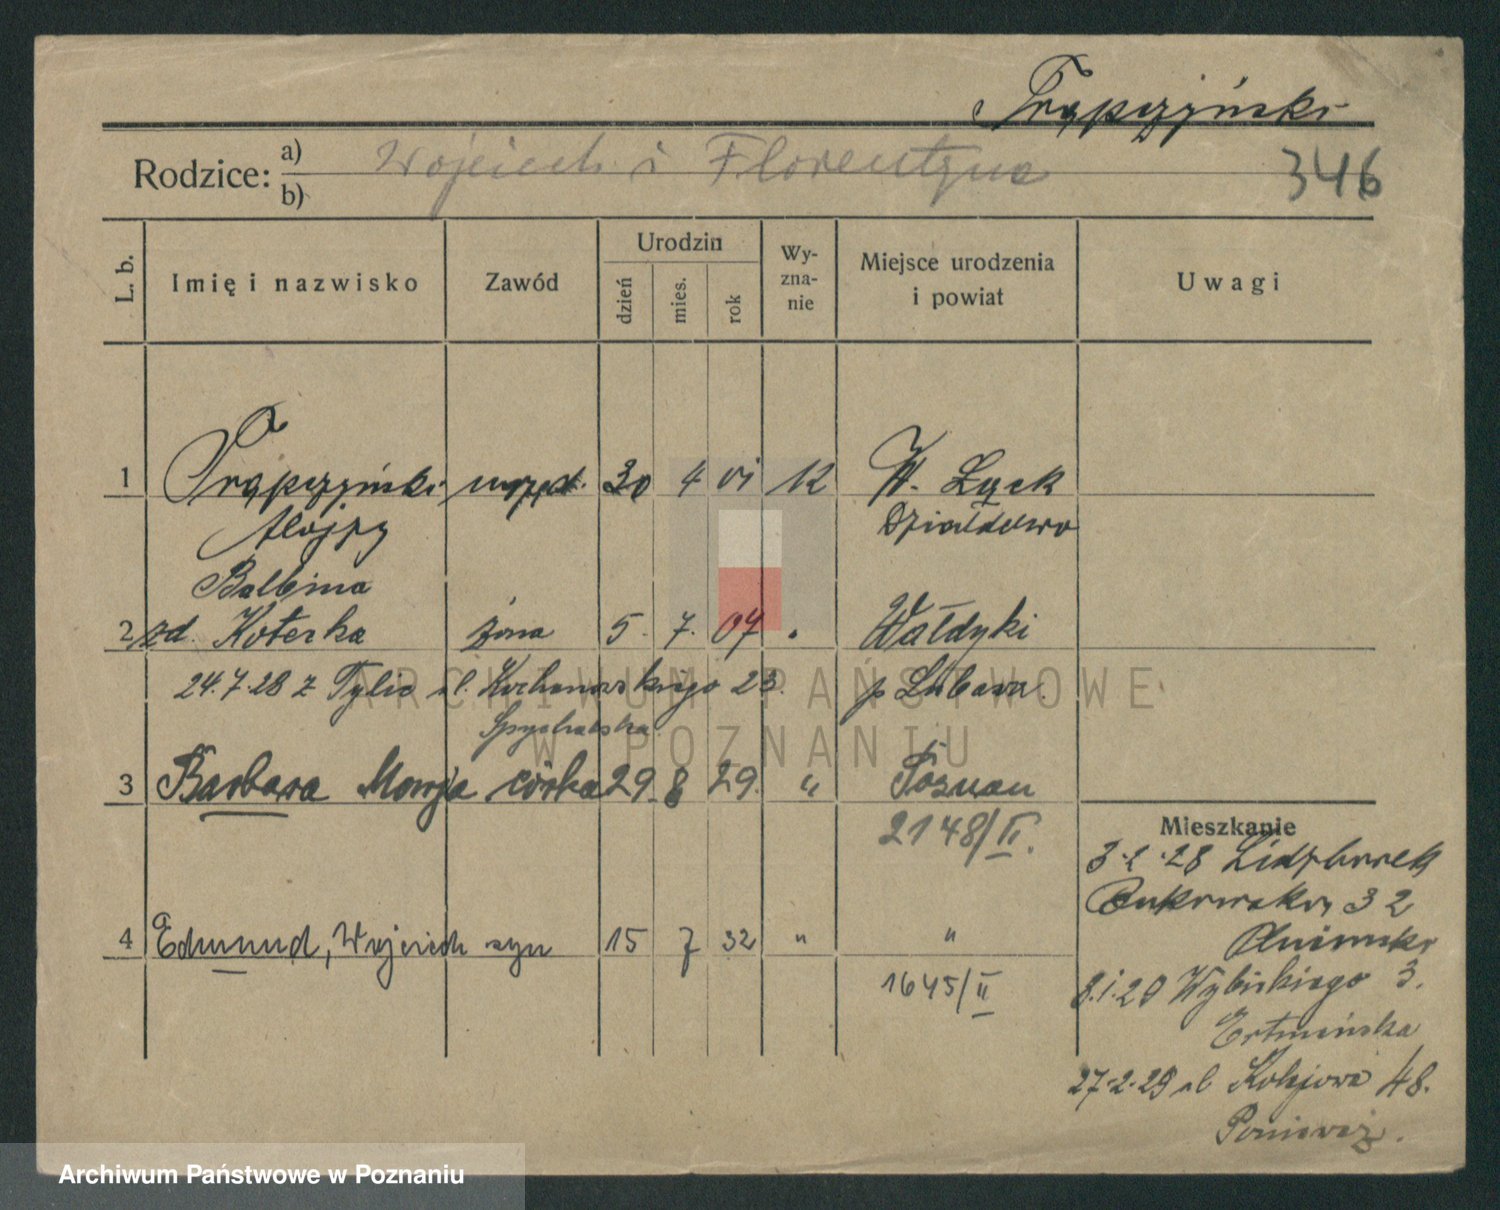 Trąpczyński
Rodzice: a) b) Wojciech i Florentyna
346
L. b. Imię i nazwisko Zawód Urodzin dzień mies. rok Wy-zna-nie Miejsce urodzenia i powiat Uwagi
1 Trąpczyński urzęd. 30 4 01 rk W. Łąck
Alojzy Działdowo
Balbina
2 zd. Koterka żona 5. 7. 07 " Wałdyki
24.7.28 z Tylic ul. Kochanowskiego 23. p. Lubawa
3 Barbara Maryja córka 29. 8 29. " Poznań
2148/II.
Mieszkanie
3.2.28 Lidzbark
Bukowska 32
4 Edmund, Wojciech syn 15 7 32 " "
1645/II
8.1.29 Wybickiego 3.
27.2.29 ul Kolejowa 48.
ARCHIWUM PAŃSTWOWE
W POZNANIU
Archiwum Państwowe w Poznaniu